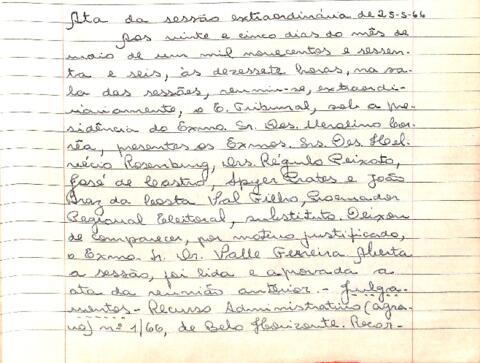 Ata da sessão extraordinária de 25-5-66
Aos vinte e cinco dias do mês de
maio de um mil novecentos e sessen-
ta e seis, às dezessete horas, na sa-
la das sessões, reuniu-se, extraordi-
nariamente, o E. Tribunal, sob a pre-
sidência do Exmo. Sr. Des. Merolino Cor-
rêa, presentes os Exmos. Srs. Des. Hel-
vécio Rosenburg, Drs. Régulo Peixoto,
José de Castro, Spyer Prates e João
Braz da Costa Val Filho, Procurador
Regional Eleitoral, substituto. Deixou
de comparecer, por motivo justificado,
o Exmo. Sr. Dr. Valle Ferreira. Aberta
a sessão, foi lida e aprovada a
ata da reunião anterior. - Julga-
mentos - Recurso Administrativo (agra-
vo) nº 1/66, de Belo Horizonte. Recor-